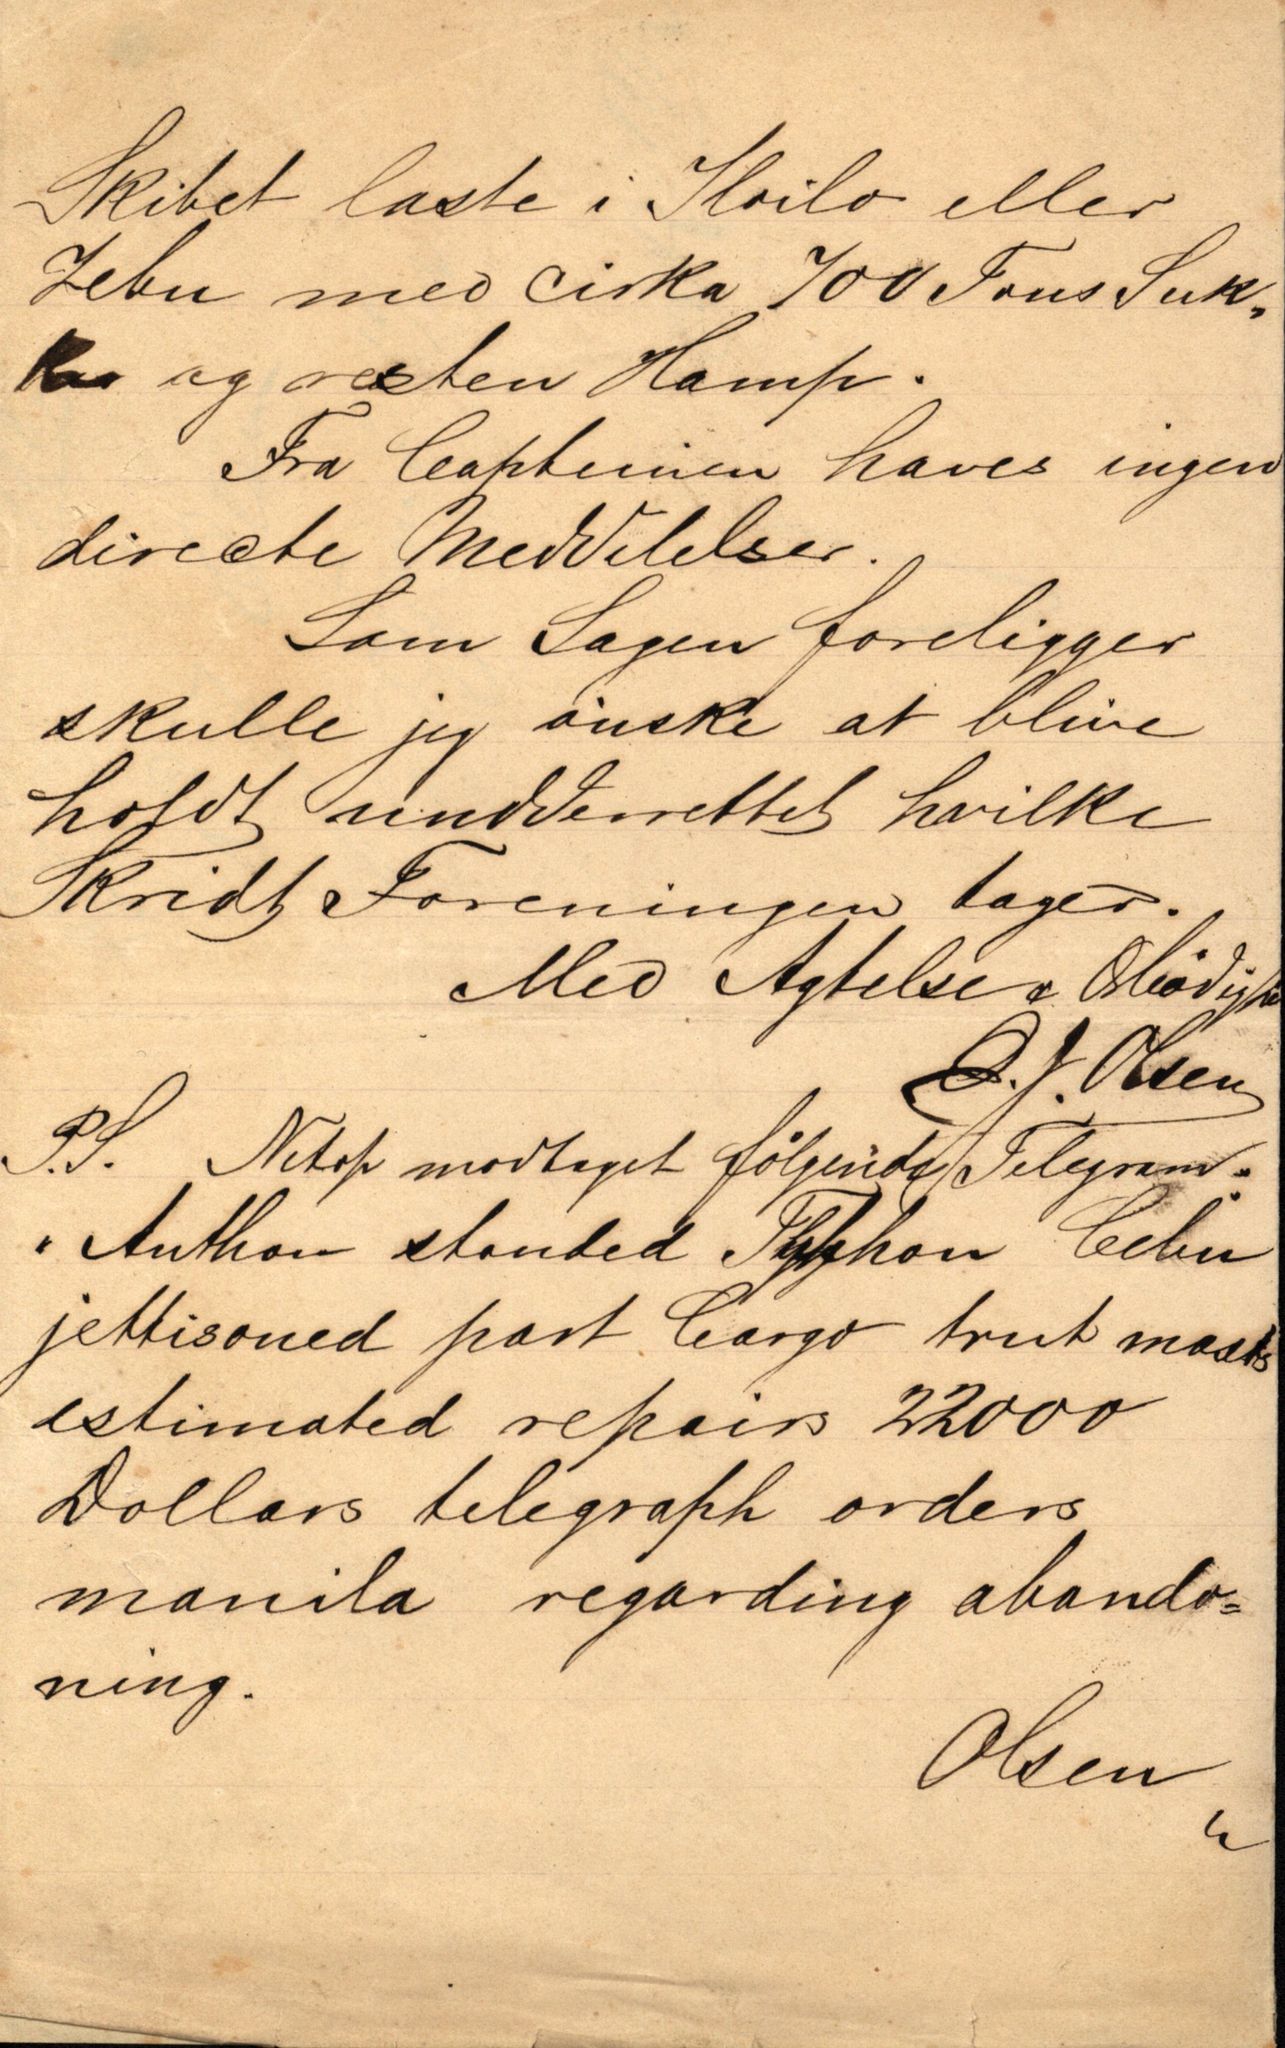 Skibet laste i Iloilo eller
Zebu med cirka 700 Tons Suk-
ker og resten Hamp.
Fra Capteinen haves ingen
directe Meddelelser.
Som Sagen foreligger
skulle jeg ønske at blive
holdt undderrettet hvilke
Skridt Foreningen tager.
Med Agtelse & Ærbødighed
O. J. Olsen
P.S. Netop modtaget følgende Telegram:
"Anthon standed Typhon Cebu
jettisoned part Cargo cut masts
estimated repairs 22000
Dollars telegraph orders
manila regarding abando=
ning.
Olsen